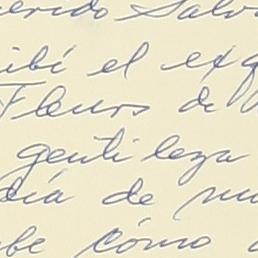 erido Salv
ibí el exq
Fleurs de
gentileza
día de mi
be cómo a